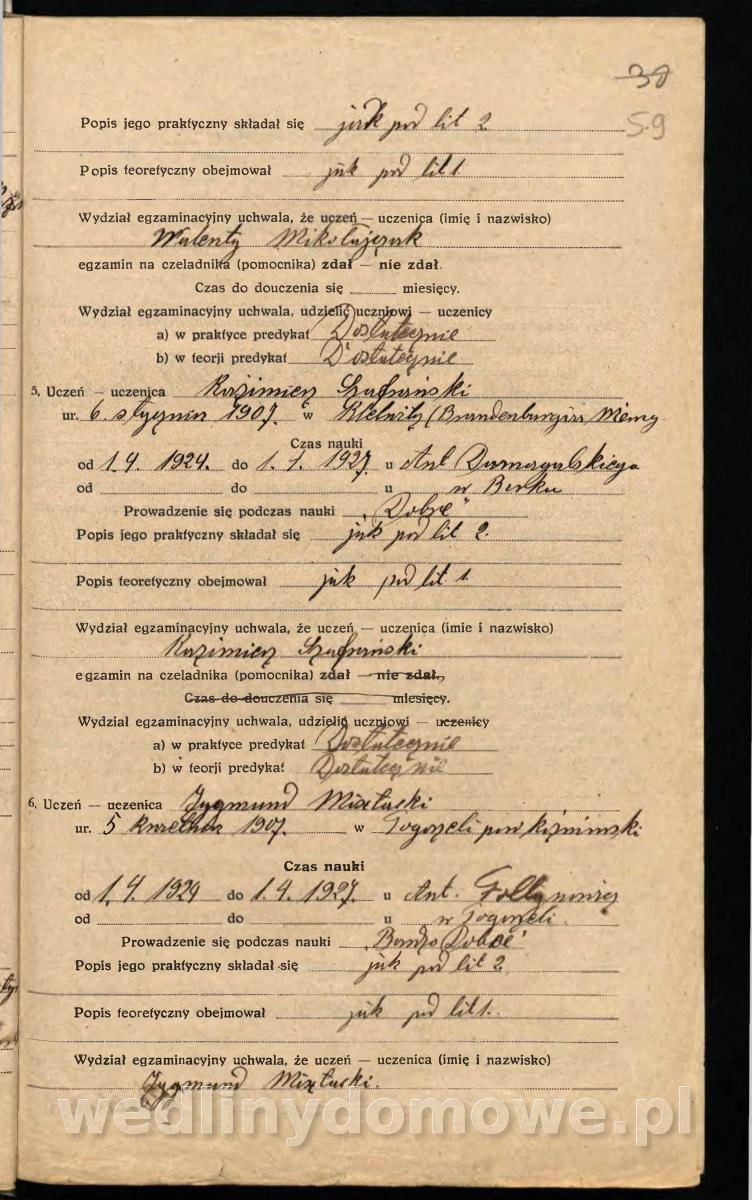 30
59
Popis jego praktyczny składał się jak pod lit 2.
Popis teoretyczny obejmował jak pod lit 1.
Wydział egzaminacyjny uchwala, że uczeń — uczenica (imię i nazwisko)
Walenty Mikołajczak
egzamin na czeladnika (pomocnika) zdał — nie zdał.
Czas do douczenia się miesięcy.
Wydział egzaminacyjny uchwala, udzielić uczniowi — uczenicy
a) w praktyce predykat Dostatecznie
b) w teorji predykat Dostatecznie
5. Uczeń — uczenica Kazimierz Szafrański
ur. 6 stycznia 1907. w (Brandenburgia, Niemcy
Czas nauki
od 1.4 1924. do 1.1. 1927. u Ant Domagalskiego
od do u w Borku
Prowadzenie się podczas nauki „Dobre"
Popis jego praktyczny składał się jak pod lit 2.
Popis teoretyczny obejmował jak pod lit. 1.
Wydział egzaminacyjny uchwala, że uczeń — uczenica (imie i nazwisko)
Kazimierz Szafrański
egzamin na czeladnika (pomocnika) zdał — nie zdał.
Czas do douczenia się miesięcy.
Wydział egzaminacyjny uchwala, udzielić uczniowi — uczenicy
a) w praktyce predykat Dostatecznie
b) w teorji predykat Dostatecznie
6. Uczeń — uczenica Zygmund
ur. 5 kwietnia 1907. w Pogorzeli pow koźmiński
Czas nauki
od 1.4. 1924 do 1.4. 1927. u Ant.
od do u w Pogorzeli.
Prowadzenie się podczas nauki „Bardzo Dobre"
Popis jego praktyczny składał się jak pod lit 2.
Popis teoretyczny obejmował jak pod lit 1.
Wydział egzaminacyjny uchwala, że uczeń — uczenica (imię i nazwisko)
Zygmund
wedlinydomowe.pl